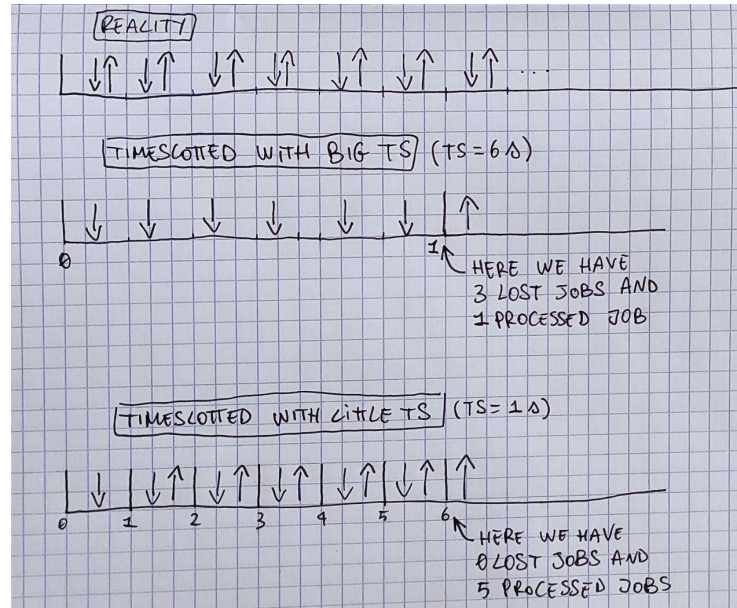 REALITY
...
TIMESLOTTED WITH BIG TS (TS=6 s)
0
1
HERE WE HAVE
3 LOST JOBS AND
1 PROCESSED JOB
TIMESLOTTED WITH LITTLE TS (TS=1 s)
0 1 2 3 4 5 6
HERE WE HAVE
0 LOST JOBS AND
5 PROCESSED JOBS